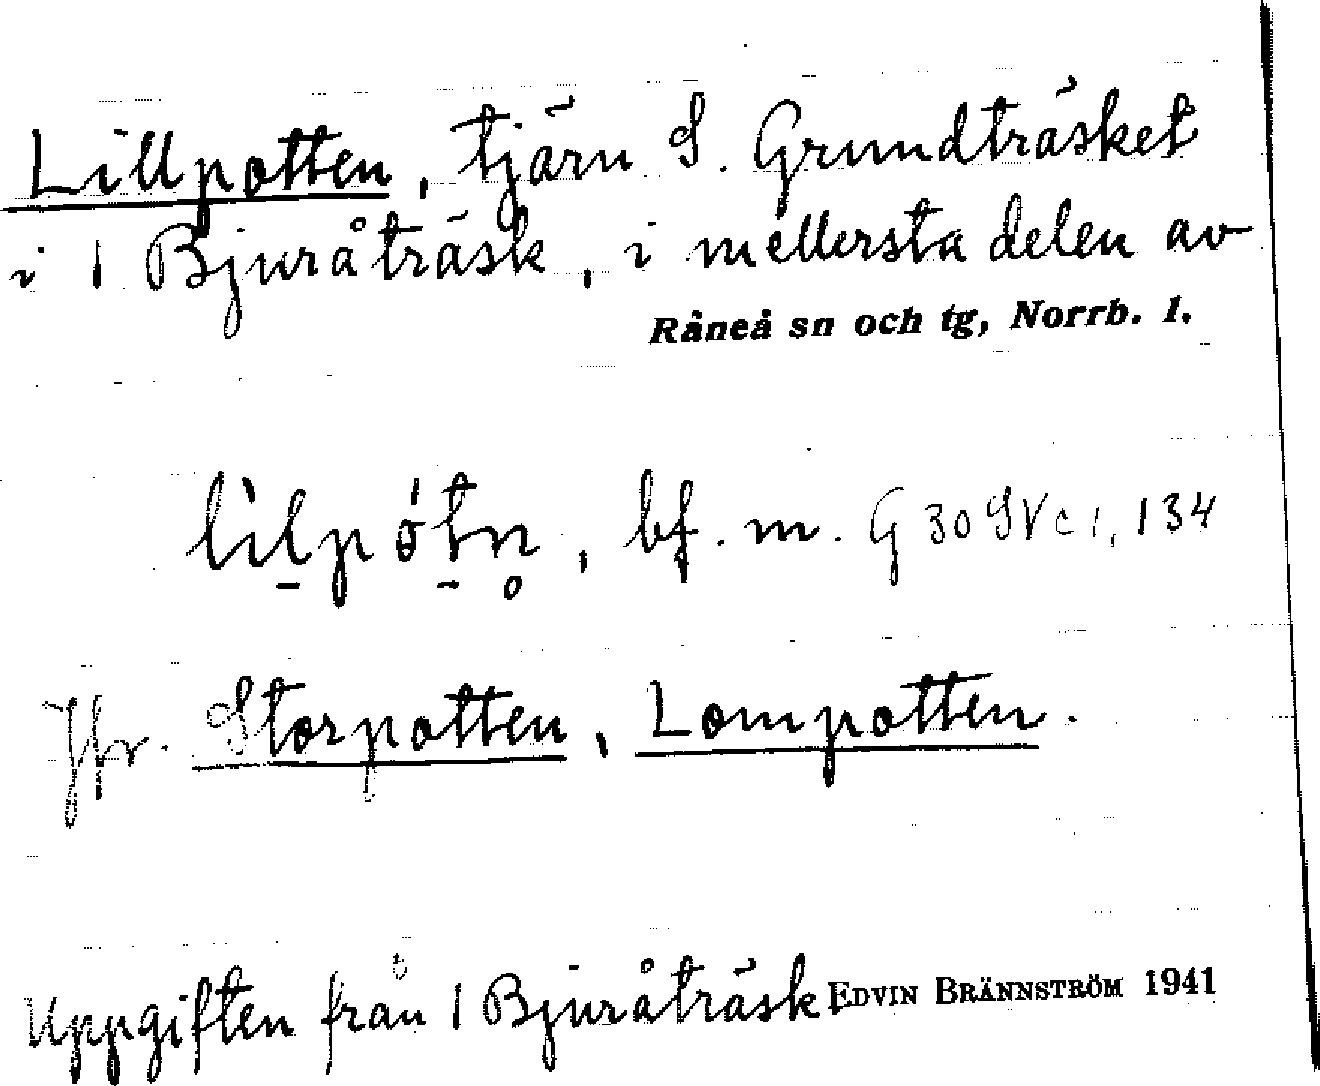 Lillpotten, tjärn S. Grundträsket
i 1 Bjuråträsk, i mellersta delen av
Råneå sn och tg, Norrb. l.
lìlpótn̥, bf. m. G 30 SV c 1, 134
Jfr. Storpotten, Lompotten.
Uppgiften från 1 Bjuråträsk EDVIN BRÄNNSTRÖM 1941